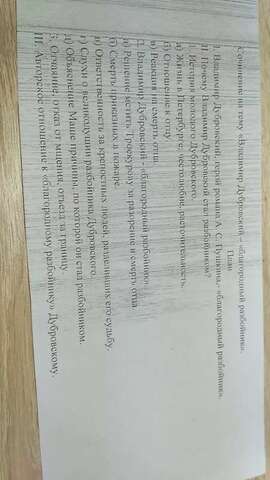 Сочинение на тему «Владимир Дубровский – «благородный разбойник».
План
I. Владимир Дубровский, герой романа А. С. Пушкина,- «благородный разбойник».
II Почему Владимир Дубровский стал разбойником?
1. История молодого Дубровского.
а) Жизнь в Петербурге, честолюбие, расточительность.
б) Отношение к отцу.
в) Реакция на смерть отца.
2. Владимир Дубровский - «благородный разбойник».
а) Решение мстить Троекурову за разорение и смерть отца.
б) Смерть приказных в пожаре.
в) Ответственность за крепостных людей, разделивших его судьбу.
г) Слухи о великодушии разбойника Дубровского.
д) Объяснение Маше причины, по которой он стал разбойником.
3. Отчаяние, отказ от мщения, отъезд за границу.
III. Авторское отношение к «благородному разбойнику» Дубровскому.